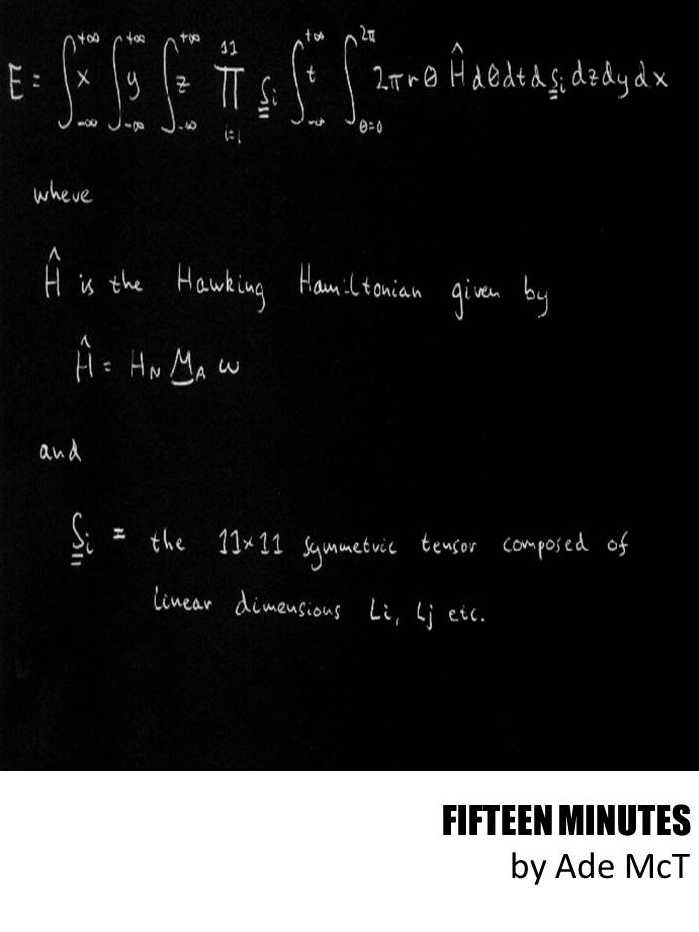 E = ∫_{-∞}^{+∞} x ∫_{-∞}^{+∞} y ∫_{-∞}^{+∞} z ∏_{i=1}^{11} S_i ∫_{-∞}^{+∞} t ∫_{θ=0}^{2π} 2πrθ Ĥ dθdtdS_i dzdydx
where
Ĥ is the Hawking Hamiltonian given by
Ĥ = H_N M_A ω
and
S_i = the 11×11 symmetric tensor composed of
linear dimensions Li, Lj etc.
FIFTEEN MINUTES
by Ade McT